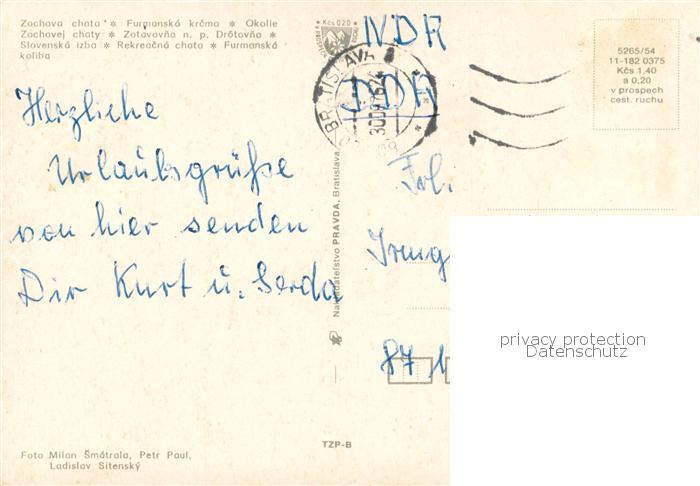 Zochova chata * Furmanská krčma * Okolie
Zochovej chaty * Zotavovňa n. p. Drôtovňa *
Slovenská izba * Rekreačná chata * Furmanská
koliba
Herzliche
Urlaubsgrüße
von hier senden
Dir Kurt u. Gerda
Foto Milan Šmátrala, Petr Paul,
Ladislav Sitenský
TZP-B
Nakladateľstvo PRAVDA, Bratislava,
Kčs 0,20
BRATISLAVA
NDR
DDR
Frl.
Irmg
87 1
5265/54
11-182 0375
Kčs 1,40
a 0,20
v prospech
cest. ruchu
privacy protection
Datenschutz